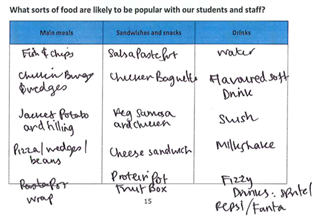 What sorts of food are likely to be popular with our students and staff?
Main meals
Sandwiches and snacks
Drinks
Fish & chips
Salsa Pasta Pot
water
Chicken Burger
& wedges
Chicken Baguette
Flavoured soft
Drink
Jacket Potato
and filling
Veg Samosa
and chicken
Slush
Pizza/wedges/
beans
Cheese sandwich
Milkshake
Pasta Pot
wrap
Protein Pot
Fruit Box
Fizzy
Drinks: Sprite/
Pepsi/Fanta
15